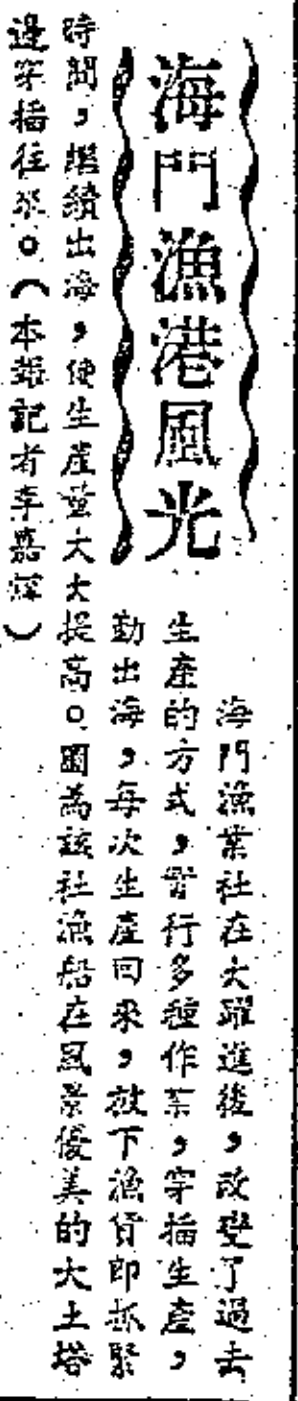 海門漁港風光
海門漁業社在大躍進後，改變了過去
生產的方式，實行多種作業，穿插生產，
勤出海，每次生產回來，放下漁貨即抓緊
時間，繼續出海，使生產量大大提高。圖爲該社漁船在風景優美的大土塔
邊穿插往來。（本報記者李嘉輝）